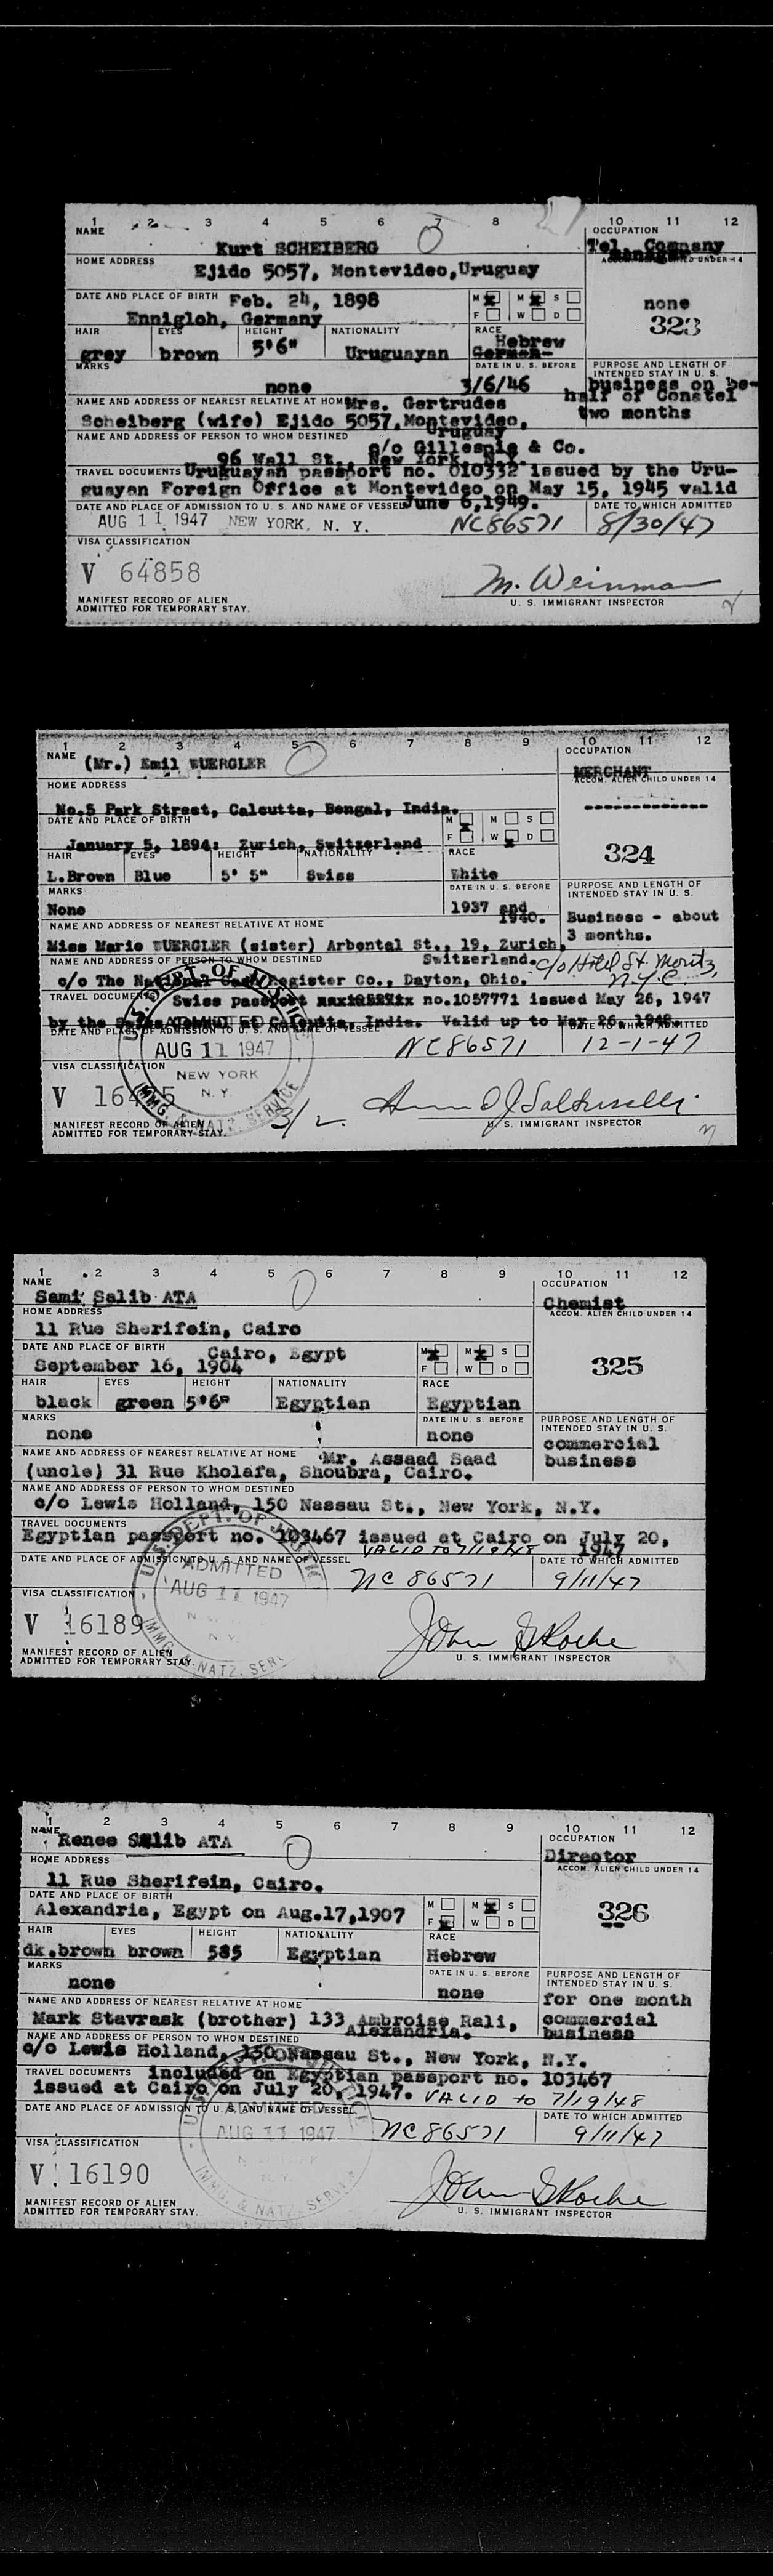 1 2 3 4 5 6 7 8 10 11 12
NAME Kurt SCHEIBERG OCCUPATION Tel. Company
manager
HOME ADDRESS Ejido 5057, Montevideo,Uruguay
DATE AND PLACE OF BIRTH Feb. 24, 1898 M F M W S D none
Ennigloh, Germany 323
HAIR EYES HEIGHT NATIONALITY RACE Hebrew
grey brown 5'6" Uruguayan German
MARKS none DATE IN U. S. BEFORE 3/6/46
PURPOSE AND LENGTH OF INTENDED STAY IN U. S.
business on be-
half of Constel
two months
NAME AND ADDRESS OF NEAREST RELATIVE AT HOME Mrs. Gertrudes
Scheiberg (wife) Ejido 5057,Montevideo,
Uruguay
NAME AND ADDRESS OF PERSON TO WHOM DESTINED c/o Gillespie & Co.
96 Wall St., New York, N.Y.
TRAVEL DOCUMENTS Uruguayan passport no. 010332 issued by the Uru-
guayan Foreign Office at Montevideo on May 15, 1945 valid
June 6,1949.
DATE AND PLACE OF ADMISSION TO U. S. AND NAME OF VESSEL DATE TO WHICH ADMITTED
AUG 11 1947 NEW YORK, N. Y. NC86571 8/30/47
VISA CLASSIFICATION
V 64858 M. Weinman
MANIFEST RECORD OF ALIEN
ADMITTED FOR TEMPORARY STAY. U. S. IMMIGRANT INSPECTOR
1 2 3 4 5 6 7 8 9 10 11 12
NAME (Mr.) Emil WUERGLER OCCUPATION
MERCHANT
HOME ADDRESS ACCOM. ALIEN CHILD UNDER 14
No.5 Park Street, Calcutta, Bengal, India.
DATE AND PLACE OF BIRTH M F M W S D
January 5, 1894: Zurich, Switzerland 324
HAIR EYES HEIGHT NATIONALITY RACE
L.Brown Blue 5' 5" Swiss White
MARKS DATE IN U. S. BEFORE PURPOSE AND LENGTH OF INTENDED STAY IN U. S.
None 1937 and
1940. Business - about
3 months.
NAME AND ADDRESS OF NEAREST RELATIVE AT HOME
Miss Marie WUERGLER (sister) Arbental St., 19, Zurich,
Switzerland.
NAME AND ADDRESS OF PERSON TO WHOM DESTINED c/o Hotel St. Moritz,
c/o The National Cash Register Co., Dayton, Ohio. N.Y.C.
TRAVEL DOCUMENTS Swiss passport no.1057771 issued May 26, 1947
by the Swiss at Calcutta, India. Valid up to May 26, 1948.
DATE AND PLACE OF ADMISSION TO U. S. AND NAME OF VESSEL DATE TO WHICH ADMITTED
U.S. DEPT. OF JUSTICE ADMITTED AUG 11 1947 NEW YORK N. Y. IMMG. & NATZ. SERVICE
NC86571 12-1-47
VISA CLASSIFICATION
V 3/2.
MANIFEST RECORD OF ALIEN
ADMITTED FOR TEMPORARY STAY. U. S. IMMIGRANT INSPECTOR
1 2 3 4 5 6 7 8 9 10 11 12
NAME OCCUPATION
Sami Salib ATA Chemist
HOME ADDRESS ACCOM. ALIEN CHILD UNDER 14
11 Rue Sherifein, Cairo
DATE AND PLACE OF BIRTH Cairo, Egypt M F M W S D
September 16, 1904 325
HAIR EYES HEIGHT NATIONALITY RACE
black green 5'6" Egyptian Egyptian
MARKS DATE IN U. S. BEFORE PURPOSE AND LENGTH OF INTENDED STAY IN U. S.
none none commercial
business
NAME AND ADDRESS OF NEAREST RELATIVE AT HOME Mr. Assaad Saad
(uncle) 31 Rue Kholafa, Shoubra, Cairo.
NAME AND ADDRESS OF PERSON TO WHOM DESTINED
c/o Lewis Holland, 150 Nassau St., New York, N.Y.
TRAVEL DOCUMENTS
Egyptian passport no. 103467 issued at Cairo on July 20,
1947
VALID TO 7/19/48
DATE AND PLACE OF ADMISSION TO U. S. AND NAME OF VESSEL DATE TO WHICH ADMITTED
U.S. DEPT. OF JUSTICE ADMITTED AUG 11 1947 N. Y. IMMG. & NATZ. SERV
NC 86571 9/11/47
VISA CLASSIFICATION
V 16189 John G Roche
MANIFEST RECORD OF ALIEN
ADMITTED FOR TEMPORARY STAY. U. S. IMMIGRANT INSPECTOR
1 2 3 4 5 6 7 8 9 10 11 12
NAME Renee Salib ATA OCCUPATION
Director
HOME ADDRESS ACCOM. ALIEN CHILD UNDER 14
11 Rue Sherifein, Cairo.
DATE AND PLACE OF BIRTH M F M W S D
Alexandria, Egypt on Aug.17,1907 326
HAIR EYES HEIGHT NATIONALITY RACE
dk.brown brown 5#5 Egyptian Hebrew
MARKS DATE IN U. S. BEFORE PURPOSE AND LENGTH OF INTENDED STAY IN U. S.
none none for one month
commercial
business
NAME AND ADDRESS OF NEAREST RELATIVE AT HOME
Mark Stavrask (brother) 133 Ambroise Rali,
Alexandria.
NAME AND ADDRESS OF PERSON TO WHOM DESTINED
c/o Lewis Holland, 150 Nassau St., New York, N.Y.
TRAVEL DOCUMENTS included on Egyptian passport no. 103467
issued at Cairo on July 20, 1947. VALID to 7/19/48
DATE AND PLACE OF ADMISSION TO U. S. AND NAME OF VESSEL DATE TO WHICH ADMITTED
AUG 11 1947 N. Y. IMMG. & NATZ. SERVICE
NC86571 9/11/47
VISA CLASSIFICATION
V 16190 John G Roche
MANIFEST RECORD OF ALIEN
ADMITTED FOR TEMPORARY STAY. U. S. IMMIGRANT INSPECTOR